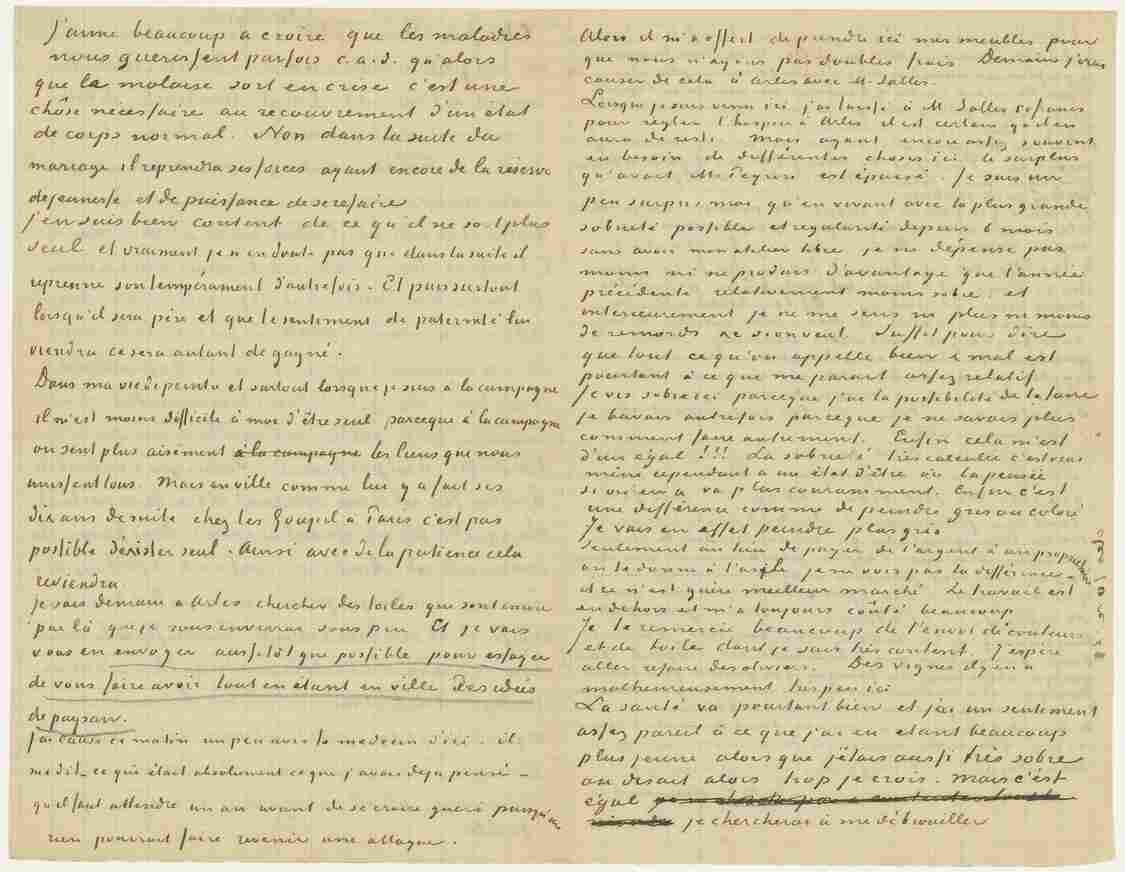 J'aime beaucoup à croire que les maladies
nous guerissent parfois c.a.d. qu'alors
que le malaise sort en crise c'est une
chôse nécessaire au recouvrement d'un état
de corps normal. Non dans la suite du
mariage il reprendra ses forces ayant encore de la réserve
de jeunesse et de puissance de se refaire
J'en suis bien content de ce qu'il ne soit plus
seul et vraiment je n'en doute pas que dans la suite il
reprenne son tempérament d'autrefois. Et puis surtout
lorsqu'il sera père et que le sentiment de paternité lui
viendra ce sera autant de gagné.
Dans ma vie de peintre et surtout lorsque je suis à la campagne
il m'est moins difficile à moi d'être seul parceque à la campagne
on sent plus aisément à la campagne les liens que nous
unissent tous. Mais en ville comme lui y a fait ses
dix ans de suite chez les Goupil à Paris c'est pas
possible d'exister seul. Ainsi avec de la patience cela
reviendra
je vais demain à Arles chercher des toiles que sont encore
par là que je vous enverrai sous peu. Et je vais
vous en envoyer aussitôt que possible pour essayer
de vous faire avoir tout en étant en ville des idées
de paysan.
J'ai causé ce matin un peu avec le médecin d'ici - il
me dit - ce qui était absolument ce que j'avais déjà pensé -
qu'il faut attendre un an avant de se croire guéri puisqu'un
rien pourrait faire revenir une attaque.
Alors il m'a offert de prendre ici mes meubles pour
que nous n'ayons pas doubles frais Demain j'irai
causer de cela à Arles avec M. Salles.
Lorsque je suis venu ici j'ai laissé à M. Salles 50 francs
pour régler l'hospice à Arles il est certain qu'il en
aura de reste. Mais ayant encore assez souvent
eu besoin de différentes choses ici le surplus
qu'avait M. Peyron est épuisé. Je suis un
peu surpris moi qu'en vivant avec la plus grande
sobriété possible et régularité depuis 6 mois
sans avoir mon atelier libre je ne dépense pas
moins ni ne produis d'avantage que l'année
précédente relativement moins sobre et
intérieurement je ne me sens ni plus ni moins
de remords si l'on veut. Suffit pour dire
que tout ce qu'on appelle bien & mal est
pourtant à ce que me parait assez relatif
Je vis sobre ici parceque j'ai la possibilité de le faire
je buvais autrefois parceque je ne savais plus
comment faire autrement. Enfin cela m'est
d'un égal!!! La sobriété très calculée c'est vrai
mène cependant à un état d'être où la pensée
si on en a va plus couramment. Enfin c'est
une différence comme de peindre gris ou coloré
Je vais en effet peindre plus gris
Seulement au lieu de payer de l'argent à un propriétaire
on le donne à l'asile je ne vois pas la différence -
et ce n'est guère meilleur marché. Le travail est
en dehors et m'a toujours coûté beaucoup
Je te remercie beaucoup de l'envoi de couleurs
et de toile dont je suis très content. J'espère
aller refaire des oliviers. Des vignes il y en a
malheureusement très peu ici
La santé va pourtant bien et j'ai un sentiment
assez pareil à ce que j'ai eu etant beaucoup
plus jeune alors que j'étais aussi très sobre
on disait alors trop je crois. mais c'est
égal
je chercherai à me débrouiller